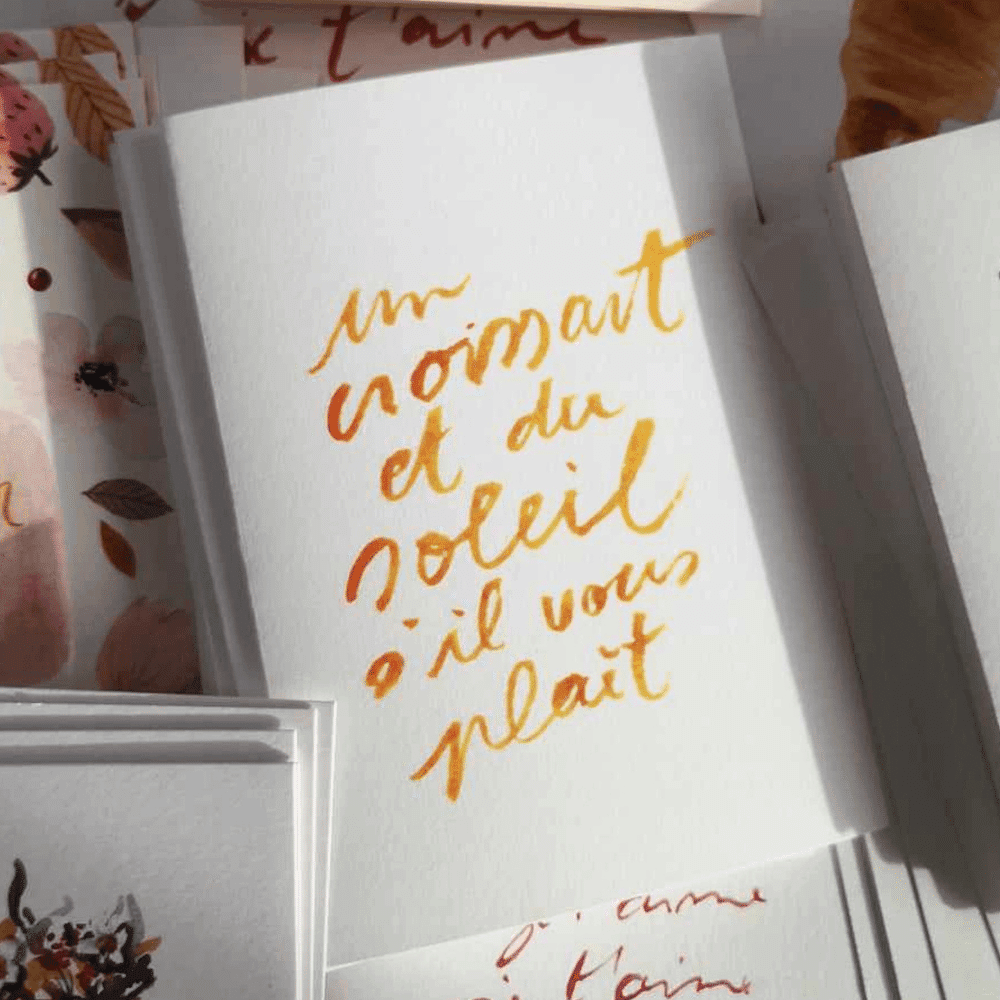 t'aime
un
croissant
et du
soleil
s'il vous
plaît
j'aime
t'aime